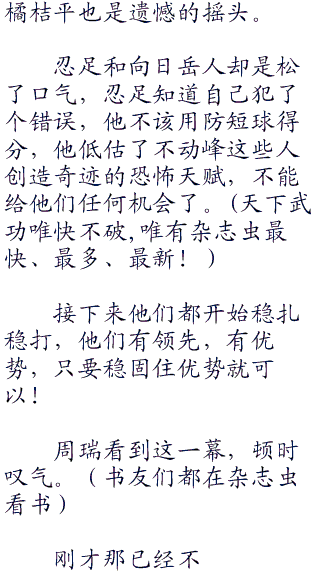 橘桔平也是遗憾的摇头。
忍足和向日岳人却是松
了口气，忍足知道自己犯了
个错误，他不该用防短球得
分，他低估了不动峰这些人
创造奇迹的恐怖天赋，不能
给他们任何机会了。(天下武
功唯快不破,唯有杂志虫最
快、最多、最新！)
接下来他们都开始稳扎
稳打，他们有领先，有优
势，只要稳固住优势就可
以！
周瑞看到这一幕，顿时
叹气。（书友们都在杂志虫
看书）
刚才那已经不